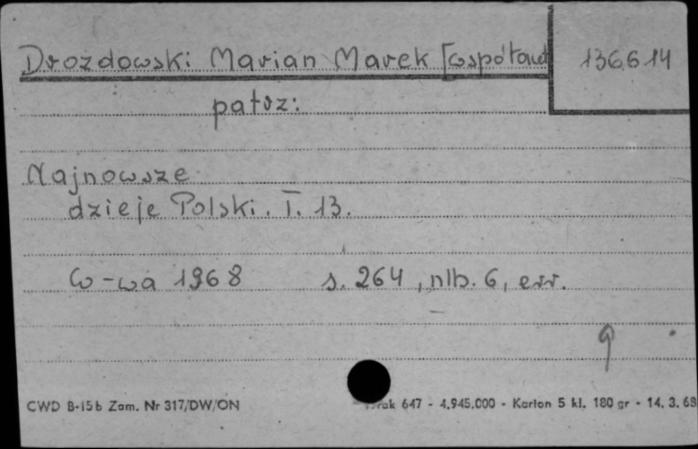 Drozdowski Marian Marek [współaut
136.614
patrz:
Najnowsze
dzieje Polski. T. 13.
W-wa 1968 s. 264, nlb. 6, err.
9
CWD B-15b Zam. Nr 317/DW/ON 647 - 4.945.000 - Karton 5 kl. 180 gr - 14. 3. 68